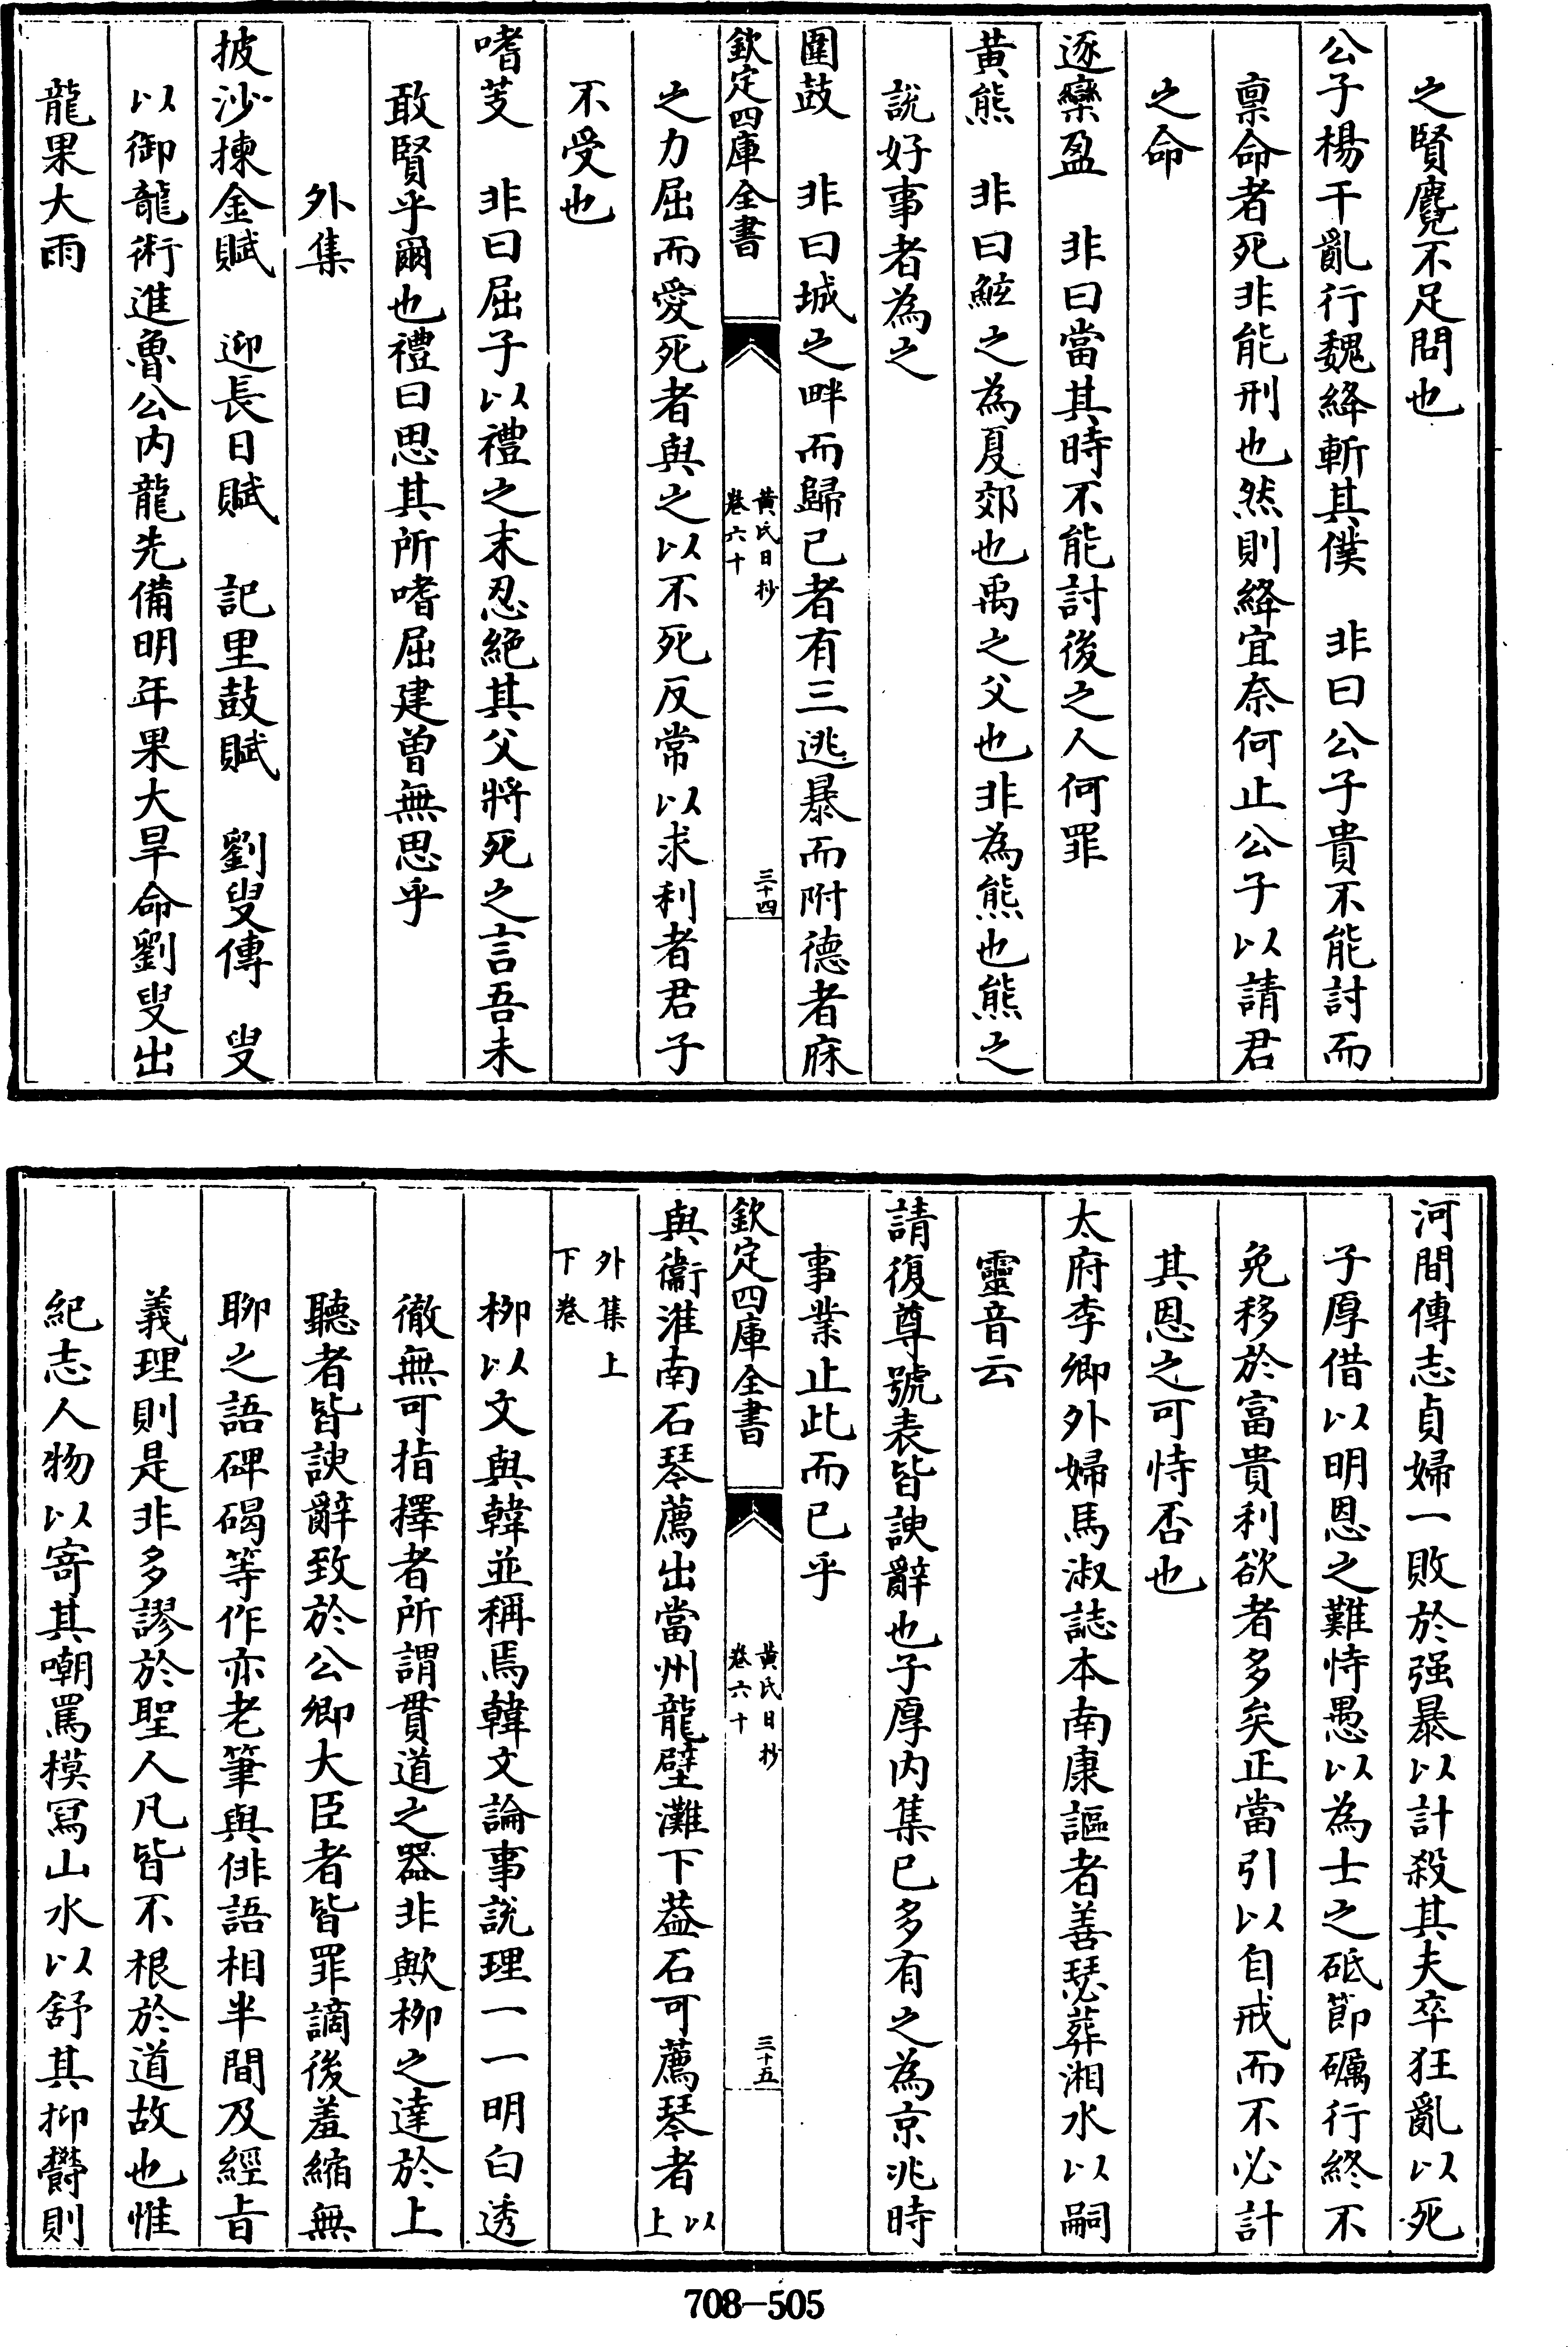 之賢麑不足問也
公子楊干亂行魏絳斬其僕　非曰公子貴不能討而
禀命者死非能刑也然則絳宜奈何止公子以請君
之命
逐欒盈　非曰當其時不能討後之人何罪
黄熊　非曰鮌之為夏郊也禹之父也非為熊也熊之
說好事者為之
圍鼓　非曰城之畔而歸己者有三逃暴而附德者庥
欽定四庫全書
黄氏日抄
卷六十
三十四
之力屈而愛死者與之以不死反常以求利者君子
不受也
嗜芰　非曰屈子以禮之末忍絶其父將死之言吾未
敢賢乎爾也禮曰思其所嗜屈建曾無思乎
外集
披沙揀金賦　迎長日賦　記里鼓賦　劉叟傳　叟
以御龍術進魯公内龍先備明年果大旱命劉叟出
龍果大雨
河間傳志貞婦一敗於强暴以計殺其夫卒狂亂以死
子厚借以明恩之難恃愚以為士之砥節礪行終不
免移於富貴利欲者多矣正當引以自戒而不必計
其恩之可恃否也
太府李卿外婦馬淑誌本南康謳者善瑟葬湘水以嗣
靈音云
請復尊號表皆諛辭也子厚内集已多有之為京兆時
事業止此而已乎
欽定四庫全書
黄氏日抄
卷六十
三十五
與衞淮南石琴薦出當州龍壁灘下葢石可薦琴者以上
外集上
下卷
栁以文與韓並稱焉韓文論事說理一一明白透
徹無可指擇者所謂貫道之器非歟栁之達於上
聽者皆諛辭致於公卿大臣者皆罪謫後羞縮無
聊之語碑碣等作亦老筆與俳語相半間及經㫖
義理則是非多謬於聖人凡皆不根於道故也惟
紀志人物以寄其嘲罵模冩山水以舒其抑鬱則
708-505